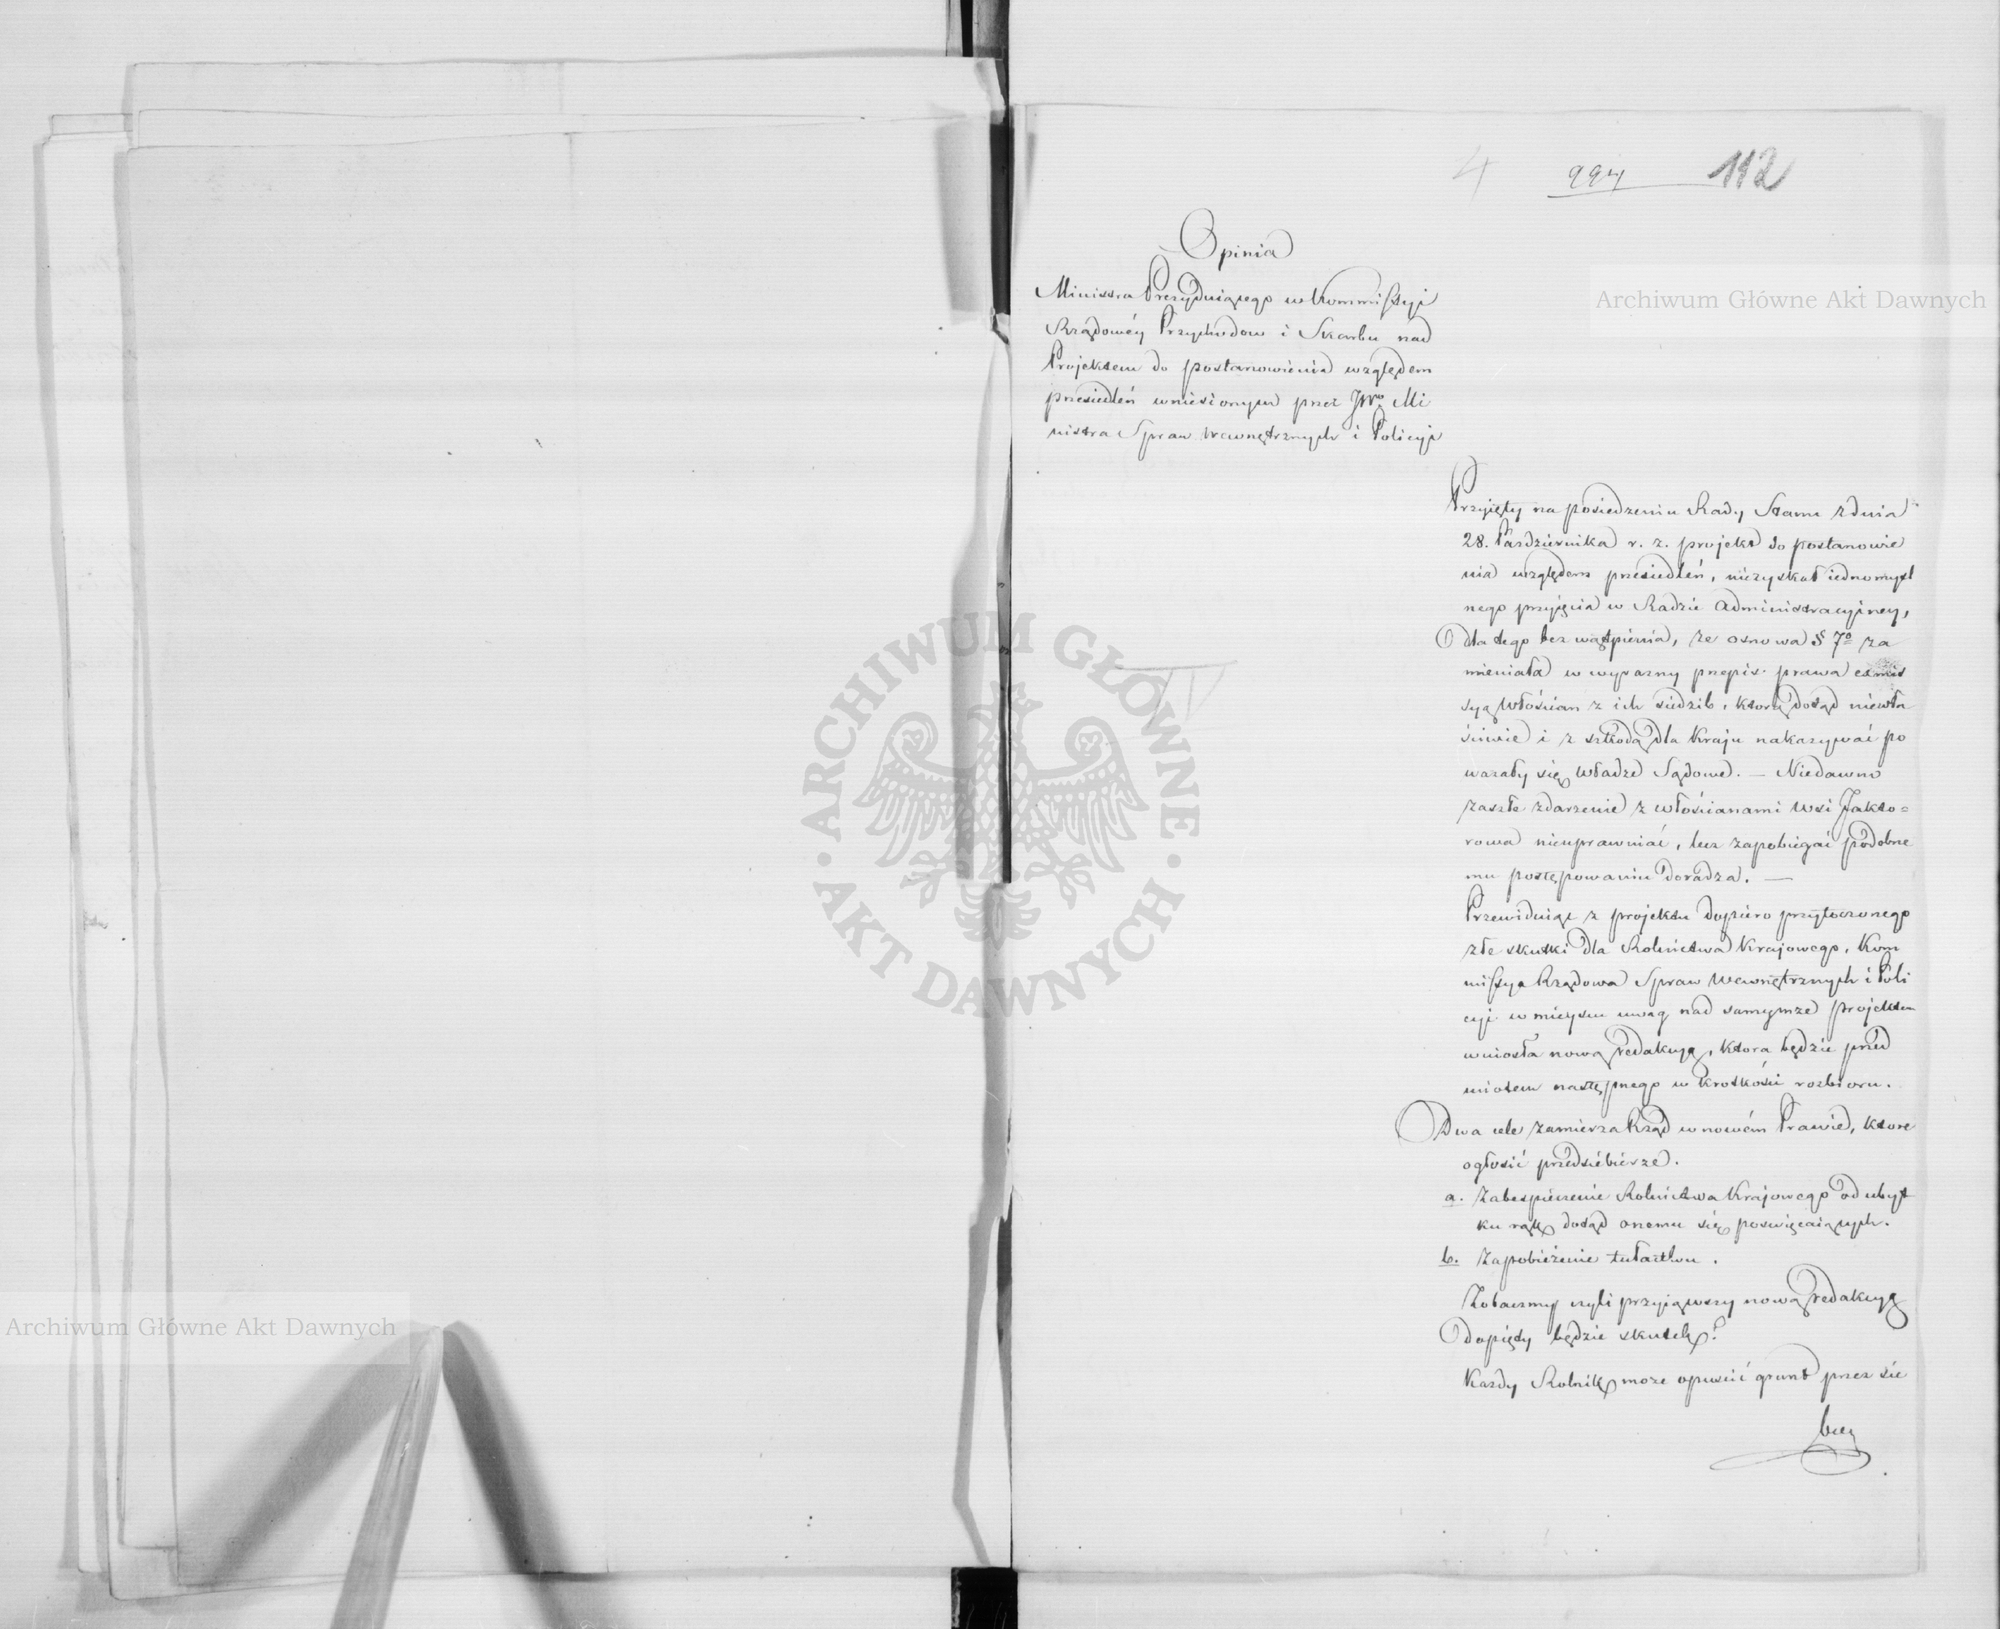 4 994 112
Opinia
Ministra Prezyduiącego w Kommissyi
Rządowéy Przychodow i Skarbu nad
Projektem do postanowienia względem
przesiedleń wniesionym przez JWo Mi
nistra Spraw Wewnętrznych i Policyi
Przyięty na posiedzeniu Rady Stanu z dnia
28. Pazdziernika r. z. projekt do postanowie
nia względem przesiedleń, niezyskał iednomyśl
nego przyięcia w Radzie Administracyiney,
dla tego bez wątpienia, ze osnowa § 7o za
mieniała w wyrazny przepis prawa exmis
syą włościan z ich siedzib, ktorą dotąd niewła
ściwie i z szkodą dla Kraju nakazywać po
wazały się Władze Sądowe. — Niedawno
zaszłe zdarzenie z włościanami wsi Jakto=
rowa nieuprawniać, lecz zapobiegać podobne
mu postępowaniu doradza. —
Przewiduiąc z projektu dopiero przytoczonego
złe skutki dla Rolnictwa Krajowego, Kom
missya Rządowa Spraw Wewnętrznych i Poli
cyi w mieyscu uwag nad samymze projektem
wniosła nową redakcyą, ktora będzie przed
miotem następnego w krotkości rozbioru.
Dwa cele zamierza Rząd w nowém Prawie, ktore
ogłosić przedsiębierze.
a. Zabespieczenie Rolnictwa Krajowego od ubyt
ku rąk dotąd onemu się poswięcaiących.
b. Zapobieżenie tułactwu.
Zobaczmy czyli przyiąwszy nową redakcyą
dopięty będzie skutek?
Kazdy Rolnik moze opuscić grunt przez sie
bie
Archiwum Główne Akt Dawnych
Archiwum Główne Akt Dawnych
ARCHIWUM GŁÓWNE
AKT DAWNYCH